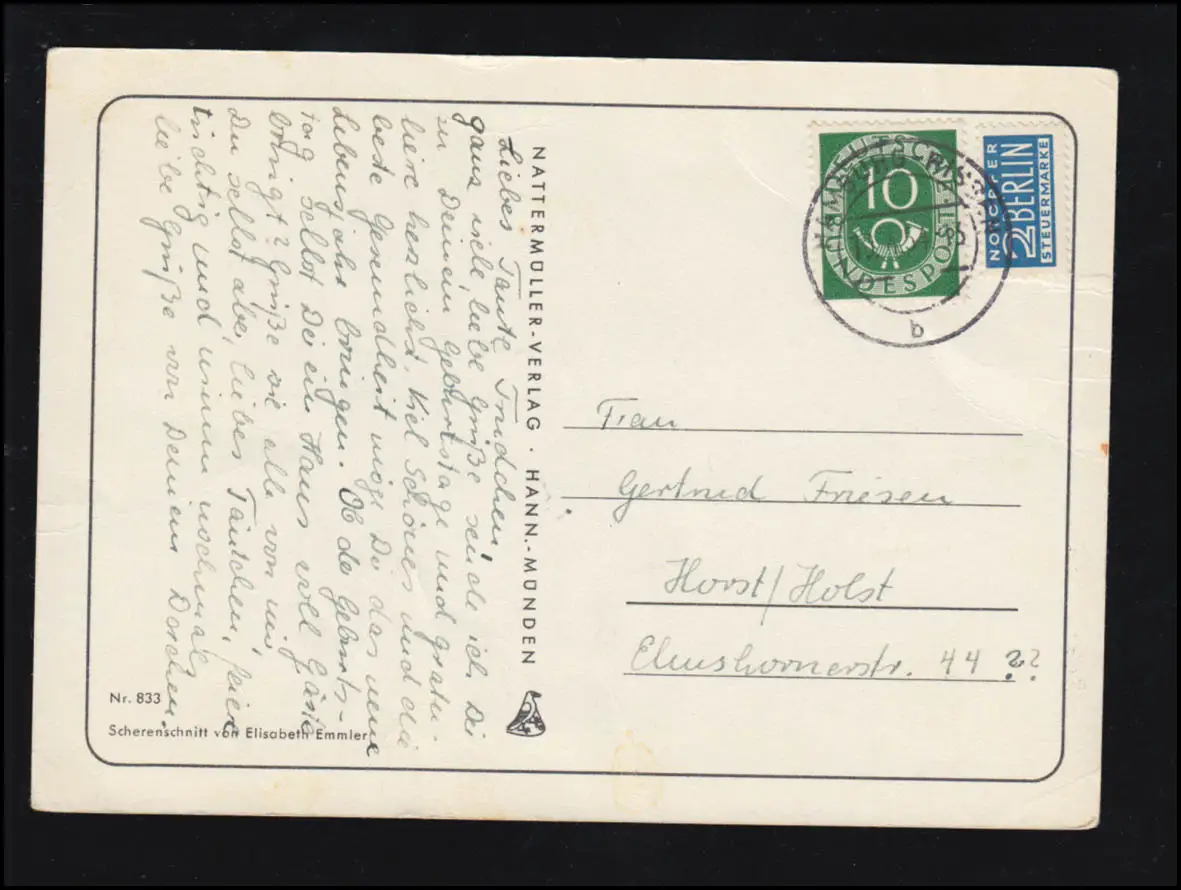 Liebes Tante Trudchen!
ganz viele, liebe Grüße sende ich Dir
zu Deinem Geburtstage und gratu-
liere herzlichst. Viel Schönes und die
beste Gesundheit möge Dir das neue
Lebensjahr bringen. Ob der Geburts-
tag selbst Dir ein Haus voll Gäste
bringt? Grüße sie alle von mir,
Du selbst aber, liebes Tantchen, feiere
tüchtig und nimm nochmals
liebe Grüße von Deinem Dorchen.
NATTERMÜLLER-VERLAG · HANN.-MÜNDEN
Nr. 833
Scherenschnitt von Elisabeth Emmler
DEUTSCHE
BUNDESPOST
10
NOTOPFER
2 BERLIN
STEUERMARKE
HAMBURG
b
Frau
Gertrud Friesen
Horst/Holst
Elmshornerstr. 44 ??